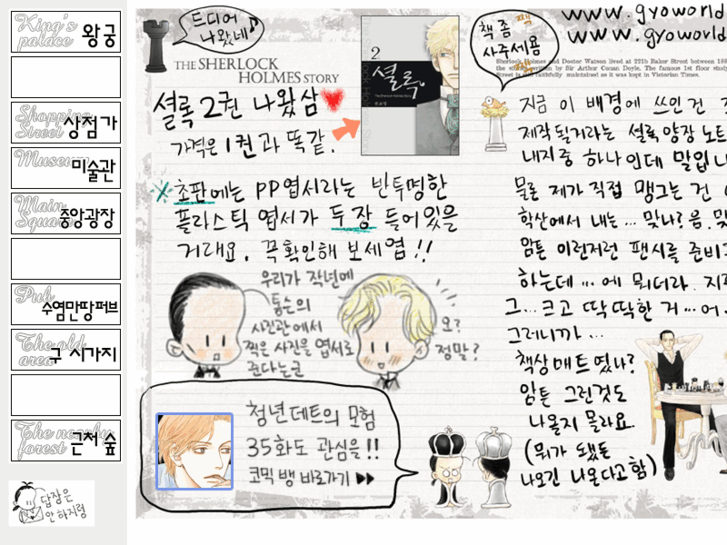 King's palace 왕궁
Shopping Street 상점가
Museum 미술관
Main Square 중앙광장
Pub 수염만땅퍼브
The old area 구 시가지
The nearby forest 근처 숲
답장은
안 하지렁
드디어
나왔네
THE SHERLOCK
HOLMES STORY
2
셜록
셜록 2권 나왔삼
가격은 1권과 똑같.
※초판에는 PP엽서라는 반투명한
플라스틱 엽서가 두 장 들어있을
거래요. 꼭 확인해 보세엽!!
우리가 작년에
통슨의
사진관에서
찍은 사진을 엽서로
준다는군
오?
정말?
청년데트의 모험
35화도 관심을!!
코믹 뱅 바로가기 ▶▶
책 좀
사주세욤
www.gyoworld
www.gyoworld
Sherlock Holmes and Doctor Watson lived at 221b Baker Street between
지금 이 배경에 쓰인 건
제작될거라는 셜록 양장 노트
내지중 하나인데 말입니
물론 제가 직접 맹그는 건
학산에서 내는... 맞나? 음.
암튼 이런저런 팬시를 준비
하는데 ...에 뭐더라.
그...크고 딱딱한 거...어.
그러니까...
책상매트였나?
암튼 그런것도
나올지 몰라요.
(뭐가 됐든
나오긴 나온다고함)